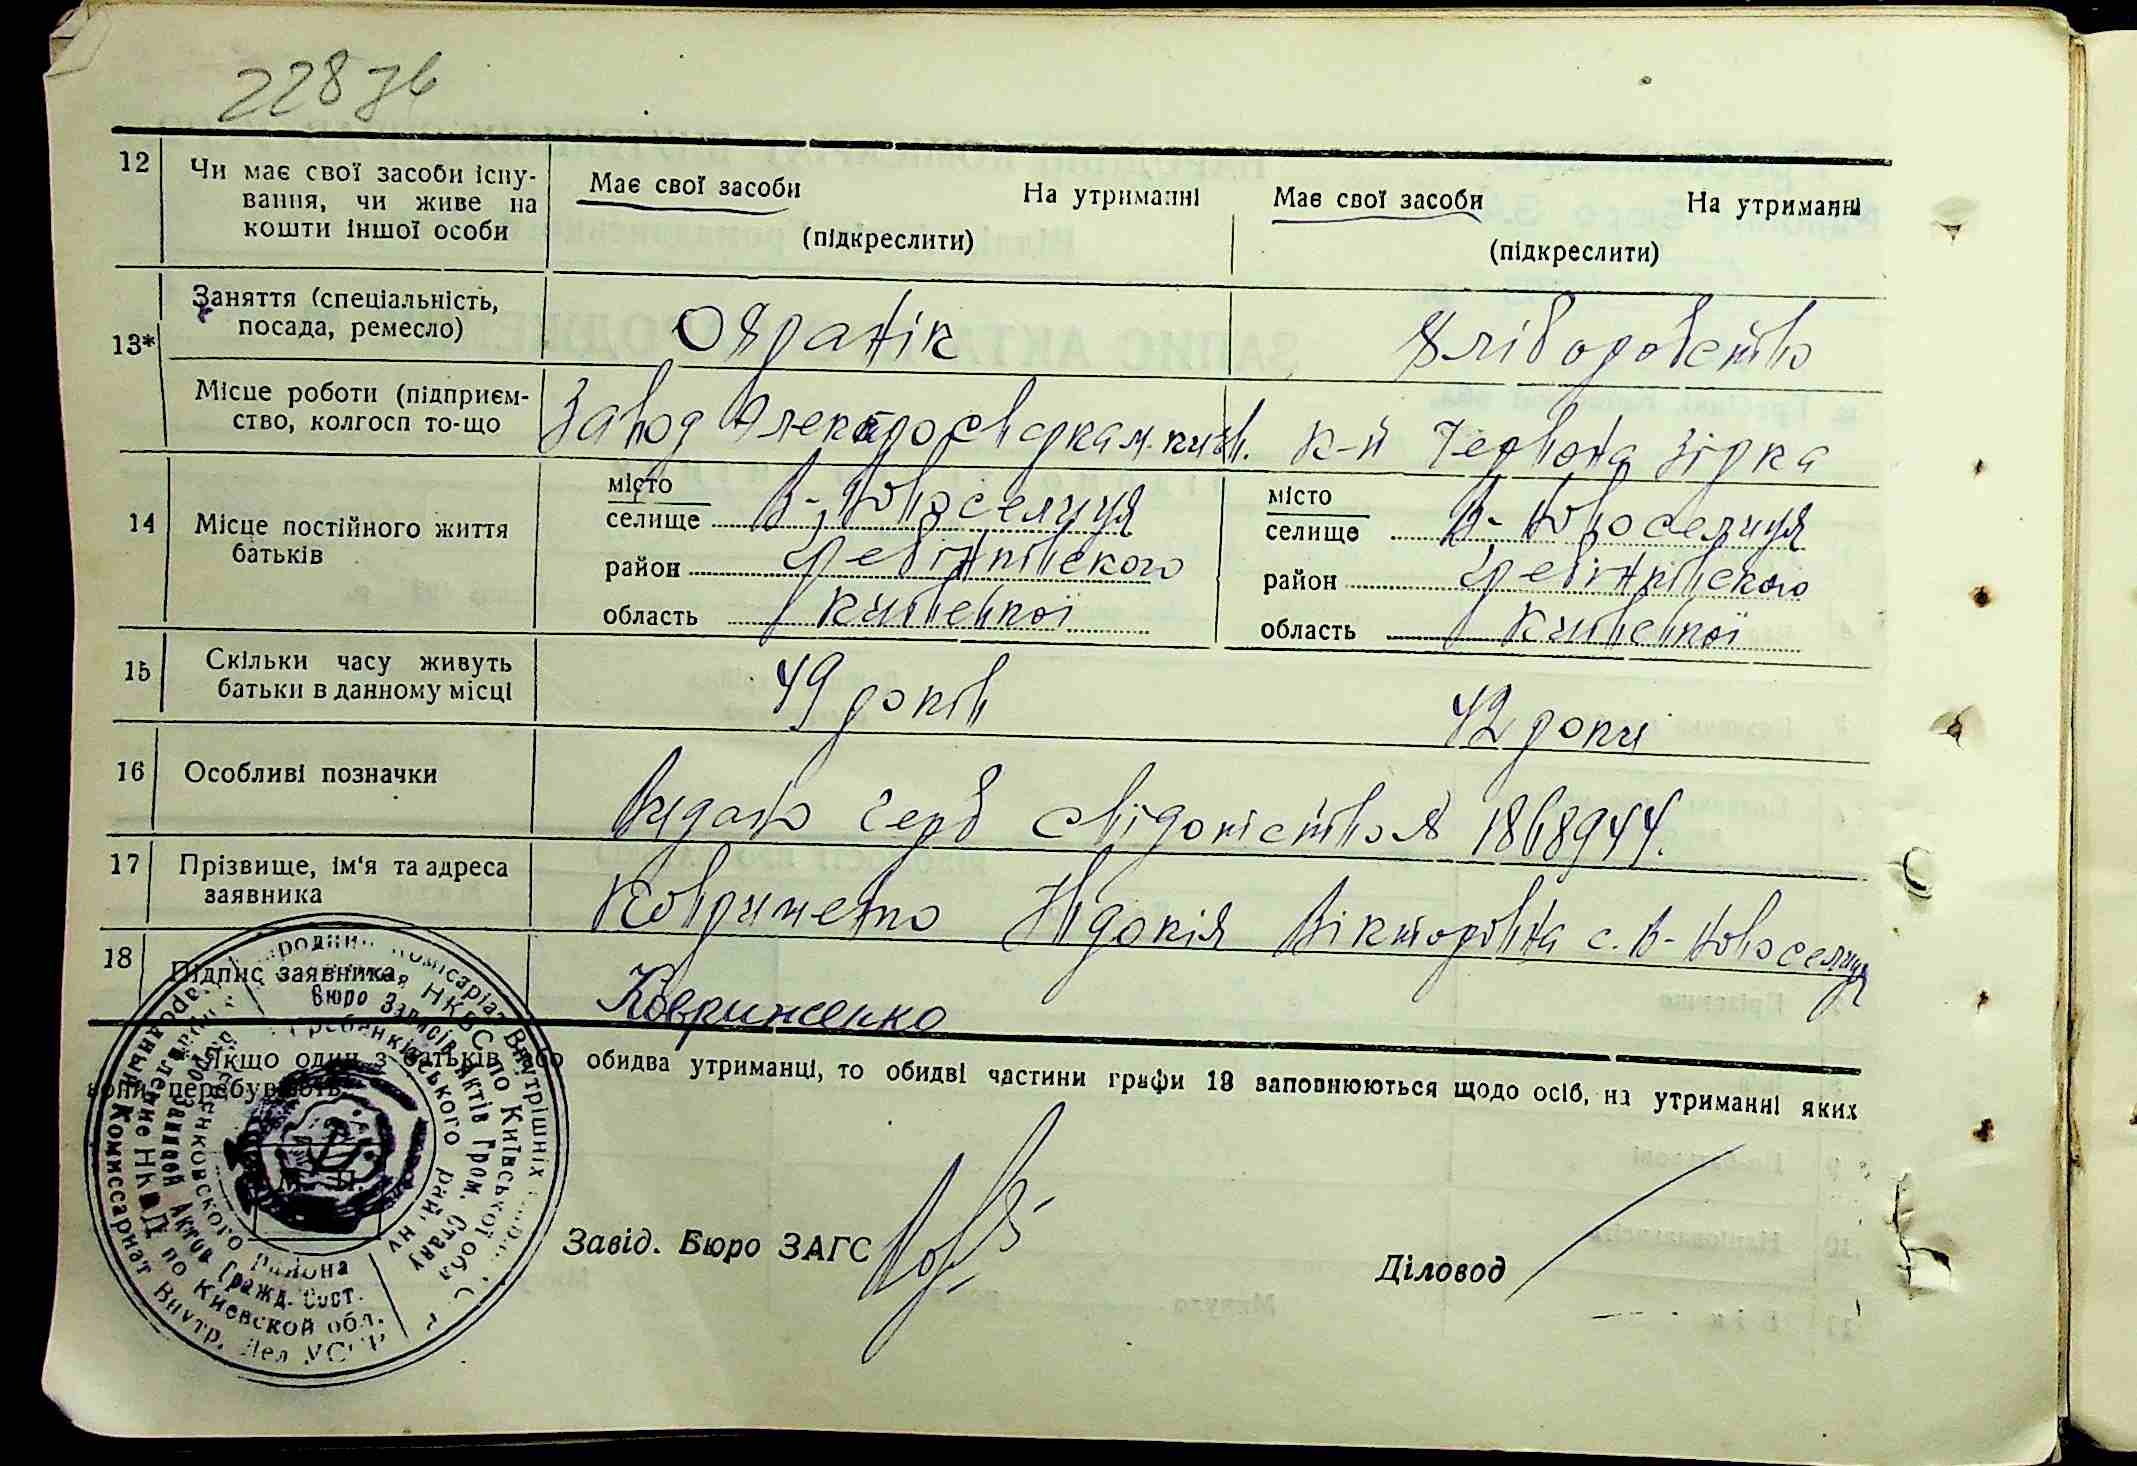 228 зв
12 Чи має свої засоби існу- Має свої засоби На утриманні Має свої засоби На утриманні
вання, чи живе на
кошти іншої особи (підкреслити) (підкреслити)
13* Заняття (спеціальність, Охранік Хліборобство
посада, ремесло)
Місце роботи (підприєм- Завод К-п Червона Зірка
ство, колгосп то-що
14 Місце постійного життя місто В-Новоселиця місто В-Новоселиця
батьків селище селище
район Гребінківского район Гребінківского
область Київської область Київської
15 Скільки часу живуть 49 років 42 роки
батьки в данному місці
16 Особливі позначки Видано герб свідоцтво № 1868944.
17 Прізвище, ім'я та адреса Ковриженко Явдокія Вікторовна с. В-Новоселиця
заявника
18 Підпис заявника Ковриженко
Якщо один з батьків або обидва утриманці, то обидві частини графи 13 заповнюються щодо осіб, на утриманні яких
вони перебувають.
М. П.
Завід. Бюро ЗАГС Діловод
Народний Комісаріат Внутрішніх
НКВС по Київської обл.
Бюро Записів Актів Гром. Стану
Гребенківського району
Гребенковского Района
Бюро Записей Актов Гражд. Сост.
Управление НКВД по Киевской обл.
Народный Комиссариат Внутр. Дел УССР